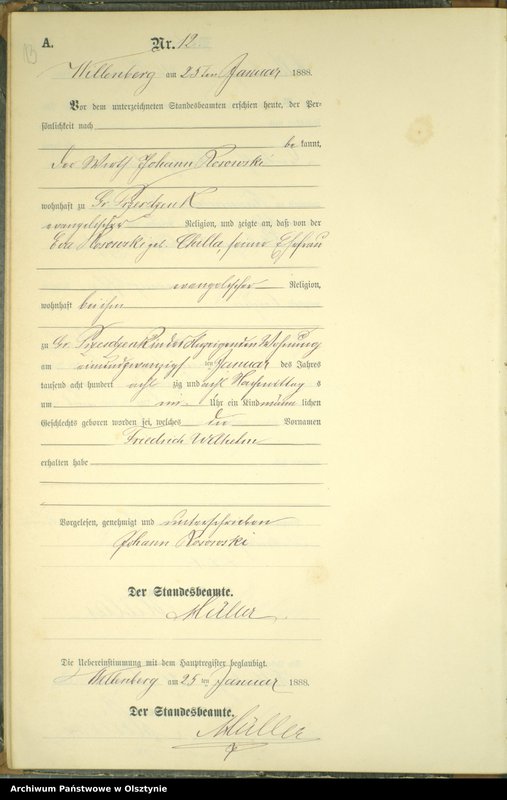 13
A.
Nr. 12.
Willenberg am 25 ten Januar 1888.
Vor dem unterzeichneten Standesbeamten erschien heute, der Per=
sönlichkeit nach
be kannt,
der Wirth Johann Rosowski
wohnhaft zu Gr. Przerdzenk
evangelischer Religion, und zeigte an, daß von der
Eva Rosowski geb. seiner Ehefrau
evangelischer Religion,
wohnhaft bei ihm
zu Gr. Przerdzenk in der Wohnung
am einundzwanzigsten ten Januar des Jahres
tausend acht hundert acht zig und acht Nachmittag s
um Uhr ein Kind männ lichen
Geschlechts geboren worden sei, welches die Vornamen
Friedrich Wilhelm
erhalten habe
Vorgelesen, genehmigt und unterschrieben
Johann Rosowski
Der Standesbeamte.
Müller
Die Uebereinstimmung mit dem Hauptregister beglaubigt.
Willenberg am 25 ten Januar 1888.
Der Standesbeamte.
Müller
Archiwum Państwowe w Olsztynie